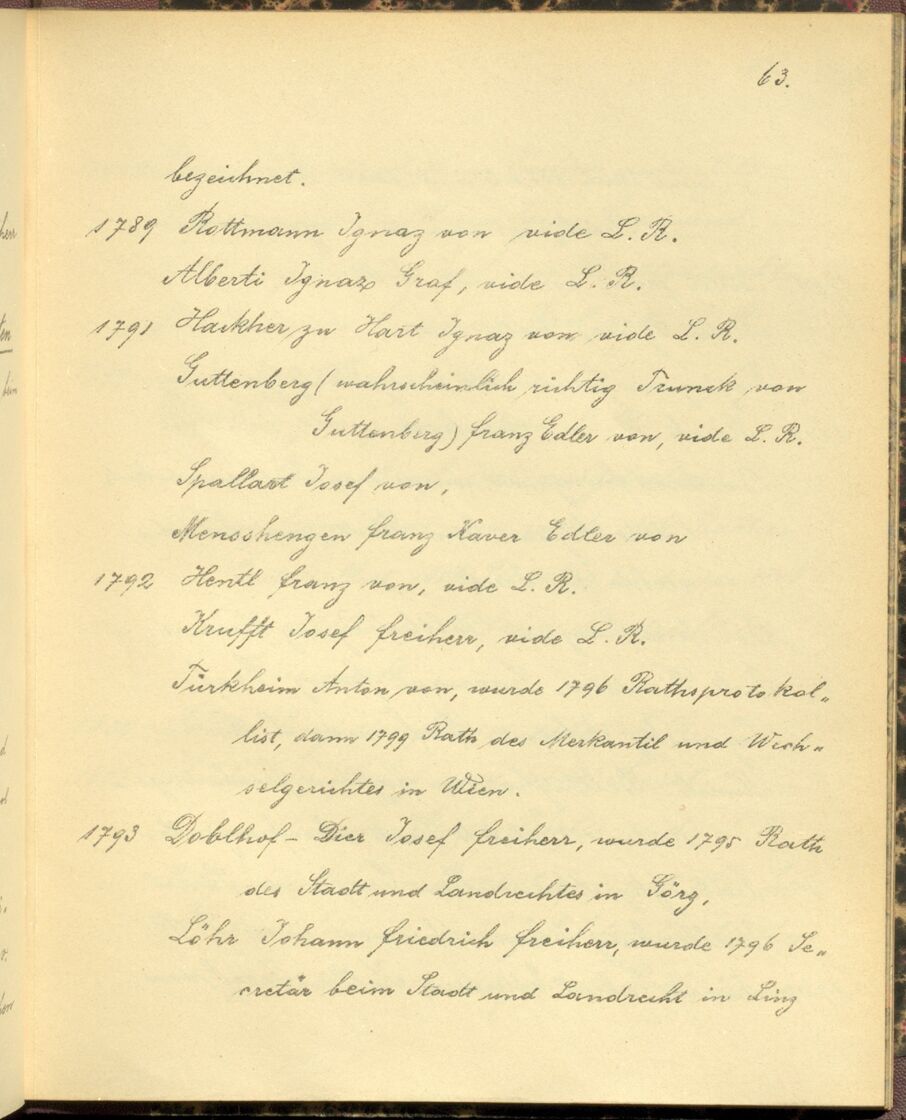 63.
bezeichnet.
1789 Rottmann Ignaz von vide L. R.
Alberti Ignaz Graf, vide L. R.
1791 Hackher zu Hart Ignaz von vide L. R.
Guttenberg (wahrscheinlich richtig Trunck von
Guttenberg) Franz Edler von, vide L. R.
Spallart Josef von,
Mensshengen Franz Xaver Edler von
1792 Hentl Franz von, vide L. R.
Krufft Josef Freiherr, vide L. R.
Türkheim Anton von, wurde 1796 Rathsprotokol„
list, dann 1799 Rath des Merkantil und Wech„
selgerichtes in Wien.
1793 Doblhof - Dier Josef Freiherr, wurde 1795 Rath
des Stadt und Landrechtes in Görz,
Löhr Johann Friedrich Freiherr, wurde 1796 Se„
cretär beim Stadt und Landrecht in Linz